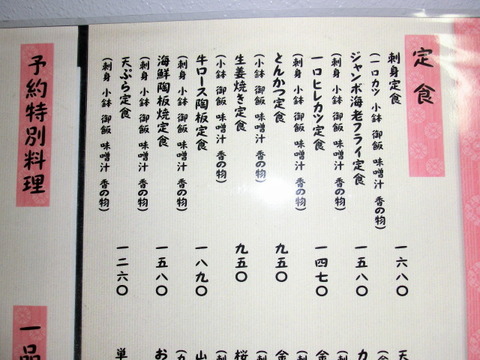 定食
刺身定食
(一口カツ 小鉢 御飯 味噌汁 香の物)
一六八〇
ジャンボ海老フライ定食
(刺身 小鉢 御飯 味噌汁 香の物)
一五八〇
一口ヒレカツ定食
(刺身 小鉢 御飯 味噌汁 香の物)
一四七〇
とんかつ定食
(小鉢 御飯 味噌汁 香の物)
九五〇
生姜焼き定食
(小鉢 御飯 味噌汁 香の物)
九五〇
牛ロース陶板定食
(刺身 小鉢 御飯 味噌汁 香の物)
一八九〇
海鮮陶板焼定食
(刺身 小鉢 御飯 味噌汁 香の物)
一五八〇
天ぷら定食
(刺身 小鉢 御飯 味噌汁 香の物)
一二六〇
予約特別料理
天
カ
(刺
金
(刺
桜
(刺
山
お
単
一品